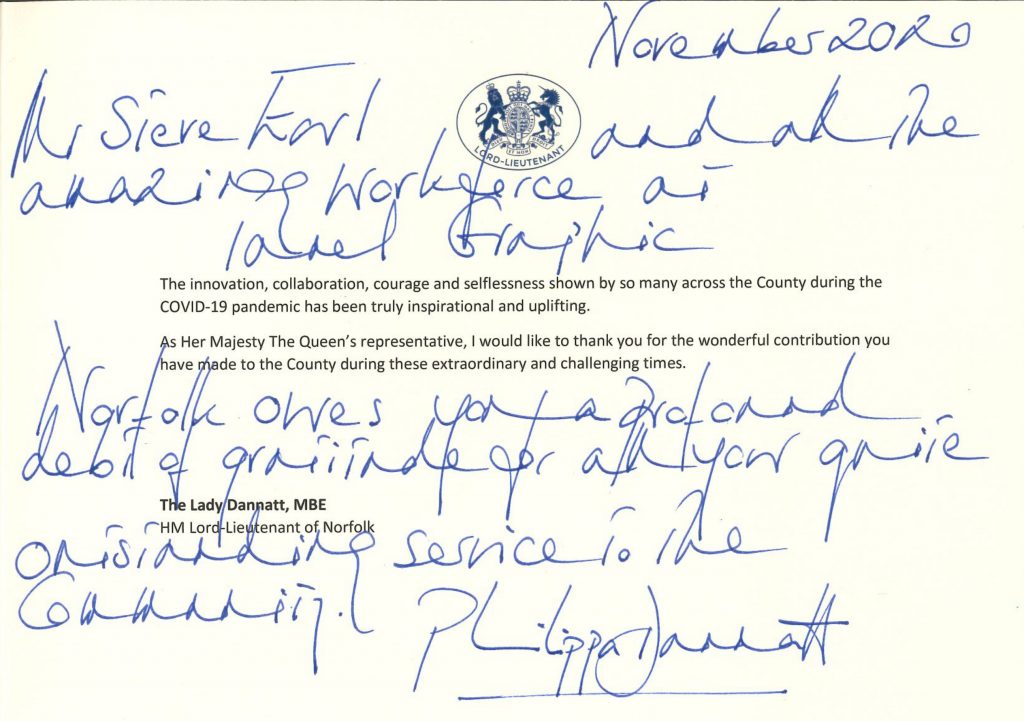 November 2020
LORD-LIEUTENANT
Mr Steve Earl and all the
amazing workforce at
Graphic
The innovation, collaboration, courage and selflessness shown by so many across the County during the
COVID-19 pandemic has been truly inspirational and uplifting.
As Her Majesty The Queen's representative, I would like to thank you for the wonderful contribution you
have made to the County during these extraordinary and challenging times.
Norfolk owes you a profound
debt of gratitude for all your quite
The Lady Dannatt, MBE
HM Lord-Lieutenant of Norfolk
outstanding service to the
Community!
Philippa Dannatt